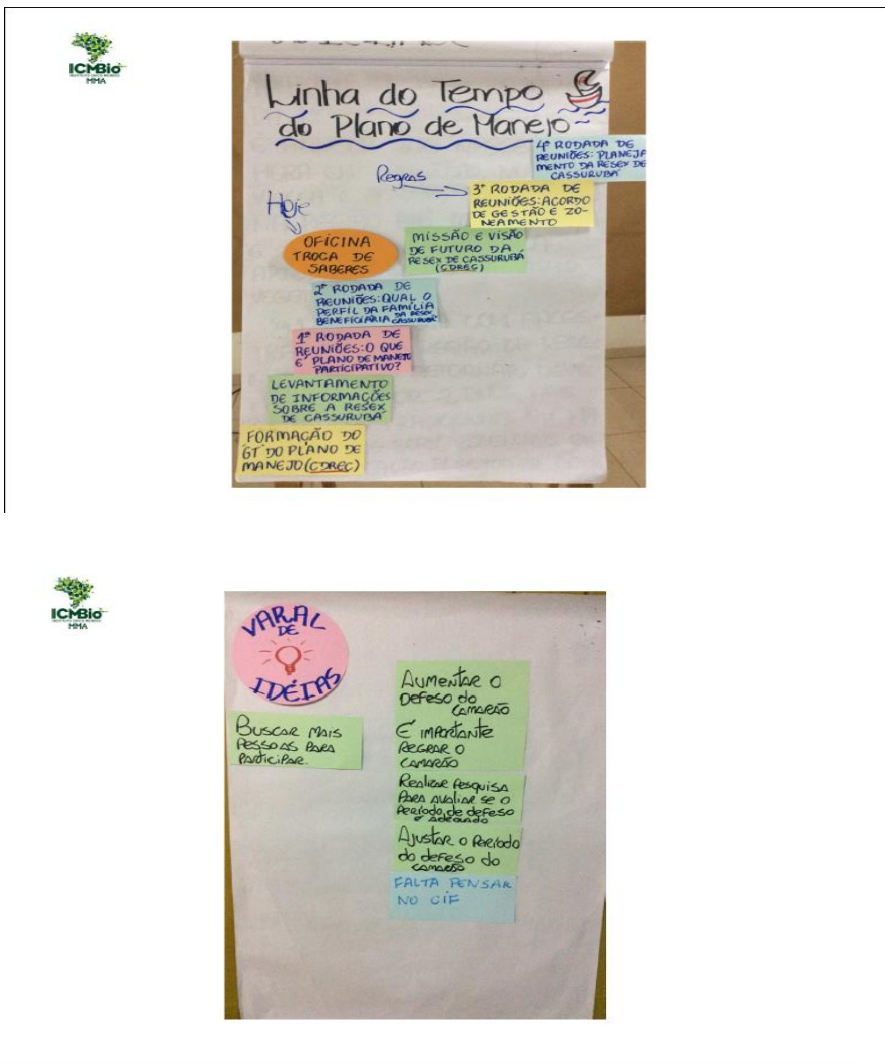 ICMBio
MMA
Linha do Tempo
do Plano de Manejo
4ª RODADA DE
REUNIÕES: PLANEJA
MENTO DA RESEX DE
CASSURUBÁ
Regras
3ª RODADA DE
REUNIÕES: ACORDO
DE GESTÃO E ZO-
NEAMENTO
Hoje
OFICINA
TROCA DE
SABERES
MISSÃO E VISÃO
DE FUTURO DA
RESEX DE CASSURUBÁ
(CDREC)
2ª RODADA DE
REUNIÕES: QUAL O
PERFIL DA FAMÍLIA
BENEFICIÁRIA DA RESEX
CASSURUBÁ
1ª RODADA DE
REUNIÕES: O QUE
É PLANO DE MANEJO
PARTICIPATIVO?
LEVANTAMENTO
DE INFORMAÇÕES
SOBRE A RESEX
DE CASSURUBÁ
FORMAÇÃO DO
GT DO PLANO DE
MANEJO (CDREC)
ICMBio
MMA
VARAL
DE
IDÉIAS
BUSCAR MAIS
PESSOAS PARA
PARTICIPAR.
AUMENTAR O
DEFESO do
CAMARÃO
É IMPORTANTE
REGRAR O
CAMARÃO
Realizar Pesquisa
PARA AVALIAR SE O
PERÍODO de defeso
é ADEQUADO
AJUSTAR O PERÍODO
do defeso do
CAMARÃO
FALTA PENSAR
NO CIF